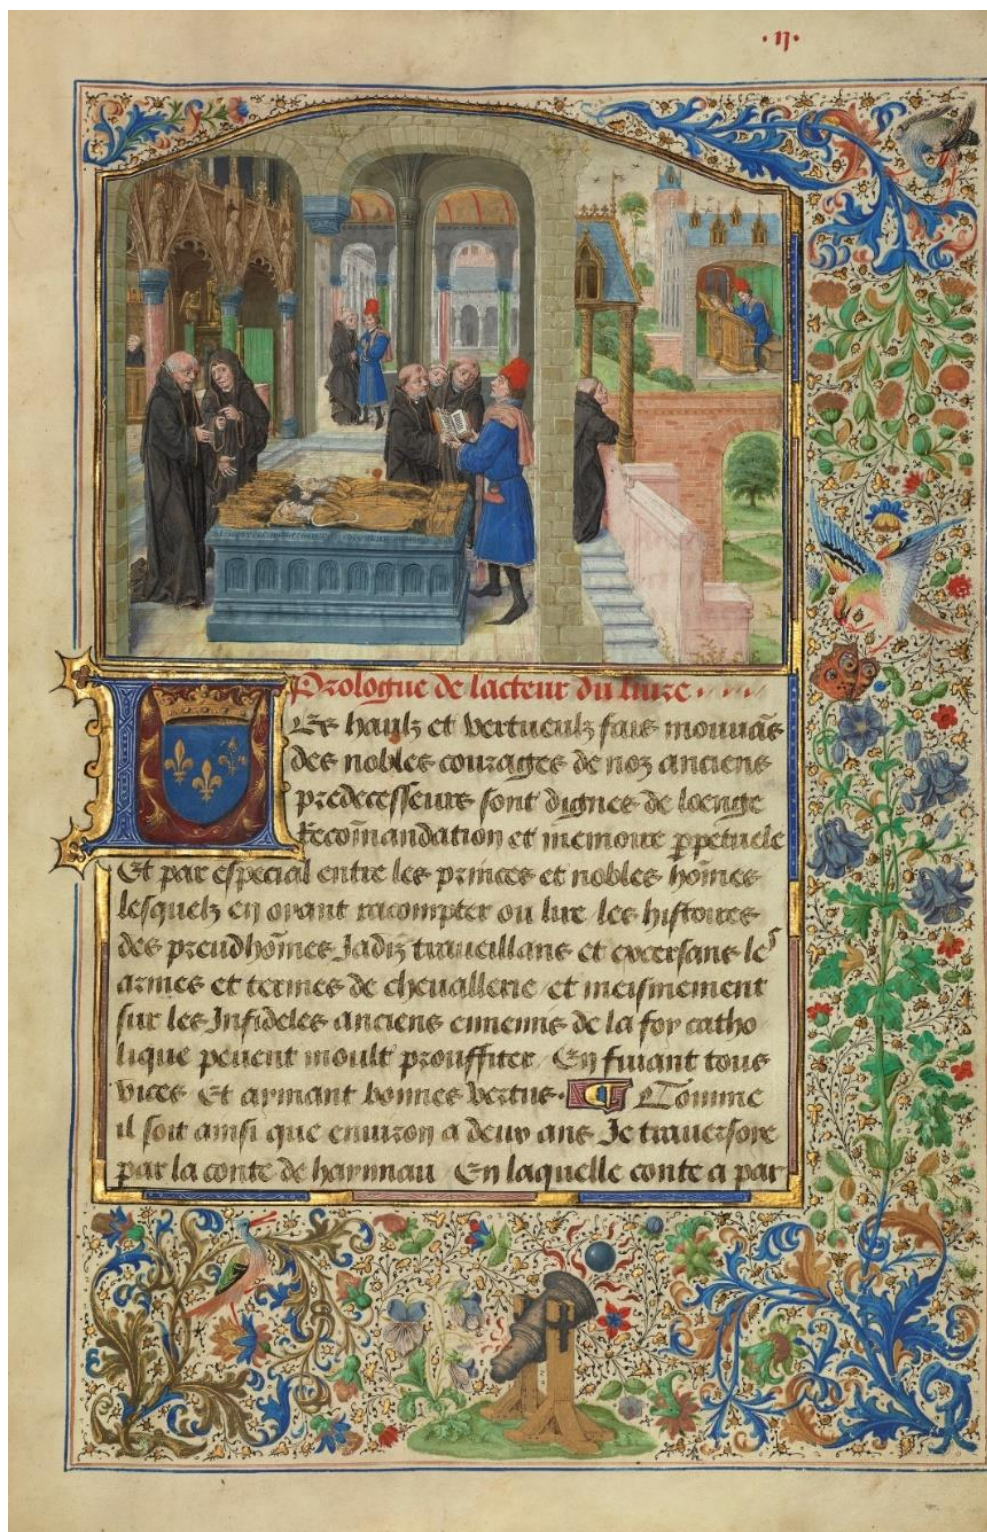 .ij.
Prologue de lacteur du liure
Les haulz et vertueulz fais mouuãs
des nobles courages de noz anciens
predecesseurs sont dignes de loenge
Recõmandation et memoire ꝑpetuele
Et par especial entre les princes et nobles hõmes
lesquelz en oyant racompter ou lire les histoires
des preudhõmes Jadiz traueillans et excersans les
armes et termes de cheuallerie et meismement
sur les Infideles anciens ennemis de la foy catho
lique peuent moult prouffiter En fuiant tous
vices Et aymant bonnes vertus. Comme
il soit ainsi que enuiron a deux ans Je trauersoie
par la conte de haynnau En laquelle conte a par